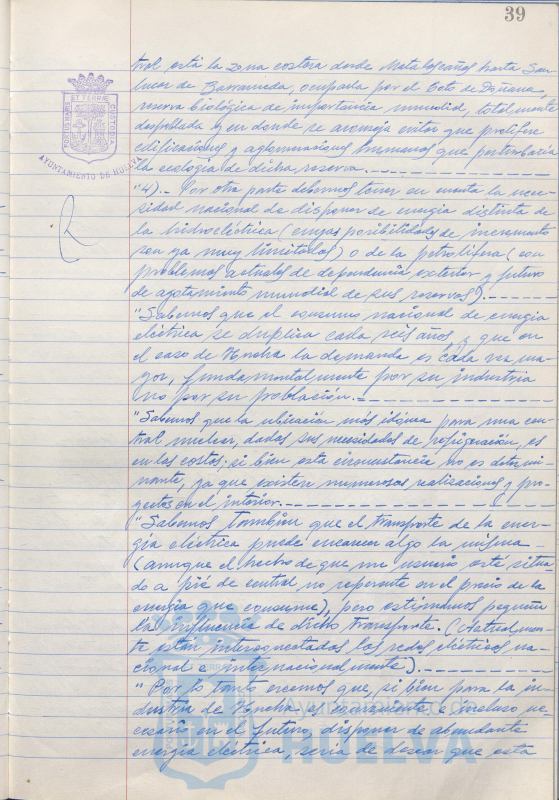 39
tral está la zona costera desde Matalascañas hasta San
lucar de Barrameda, ocupada por el Coto de Doñana,
reserva biológica de importancia mundial, totalmente
despoblada y en donde se aconseja evitar que prolifere
edificaciones y aglomeraciones humanas que perturbaría
la ecología de dicha reserva.
"4).- Por otra parte debemos tener en cuenta la nece-
sidad nacional de disponer de energía distinta de
la hidroeléctica (cuyas posibilidades de incremento
son ya muy limitadas) o de la petrolífera (con
problemas actuales de dependencia exterior y futuro
de agotamiento mundial de sus reservas).
"Sabemos que el consumo nacional de energía
eléctrica se duplica cada seis años y que en
el caso de Huelva la demanda es cada vez ma-
yor, fundamentalmente por su industria
no por su población.
"Sabemos que la ubicación más idónea para una cen-
tral nuclear, dadas sus necesidades de refrigeración, es
en las costas; si bien esta circunstancia no es determi-
nante, ya que existen numerosas realizaciones y pro-
yectos en el interior.
"Sabemos también que el transporte de la ener-
gía eléctrica puede encarecer algo la misma
(aunque el hecho de que un usuario esté situa-
do a pié de central no repercute en el precio de la
energía que consume), pero estimamos pequeña
la influencia de dicho transporte. (Actualmen-
te están interconectadas las redes eléctricas na-
cional e internacionalmente).
"Por lo tanto creemos que, si bien para la in-
dustria de Huelva es conveniente e incluso ne-
cesario en el futuro, disponer de abundante
energía eléctrica, sería de desear que esta
AYUNTAMIENTO DE HUELVA
PORTUS MARIS ET TERRAE CUSTODIA
Ayuntamiento de
HUELVA